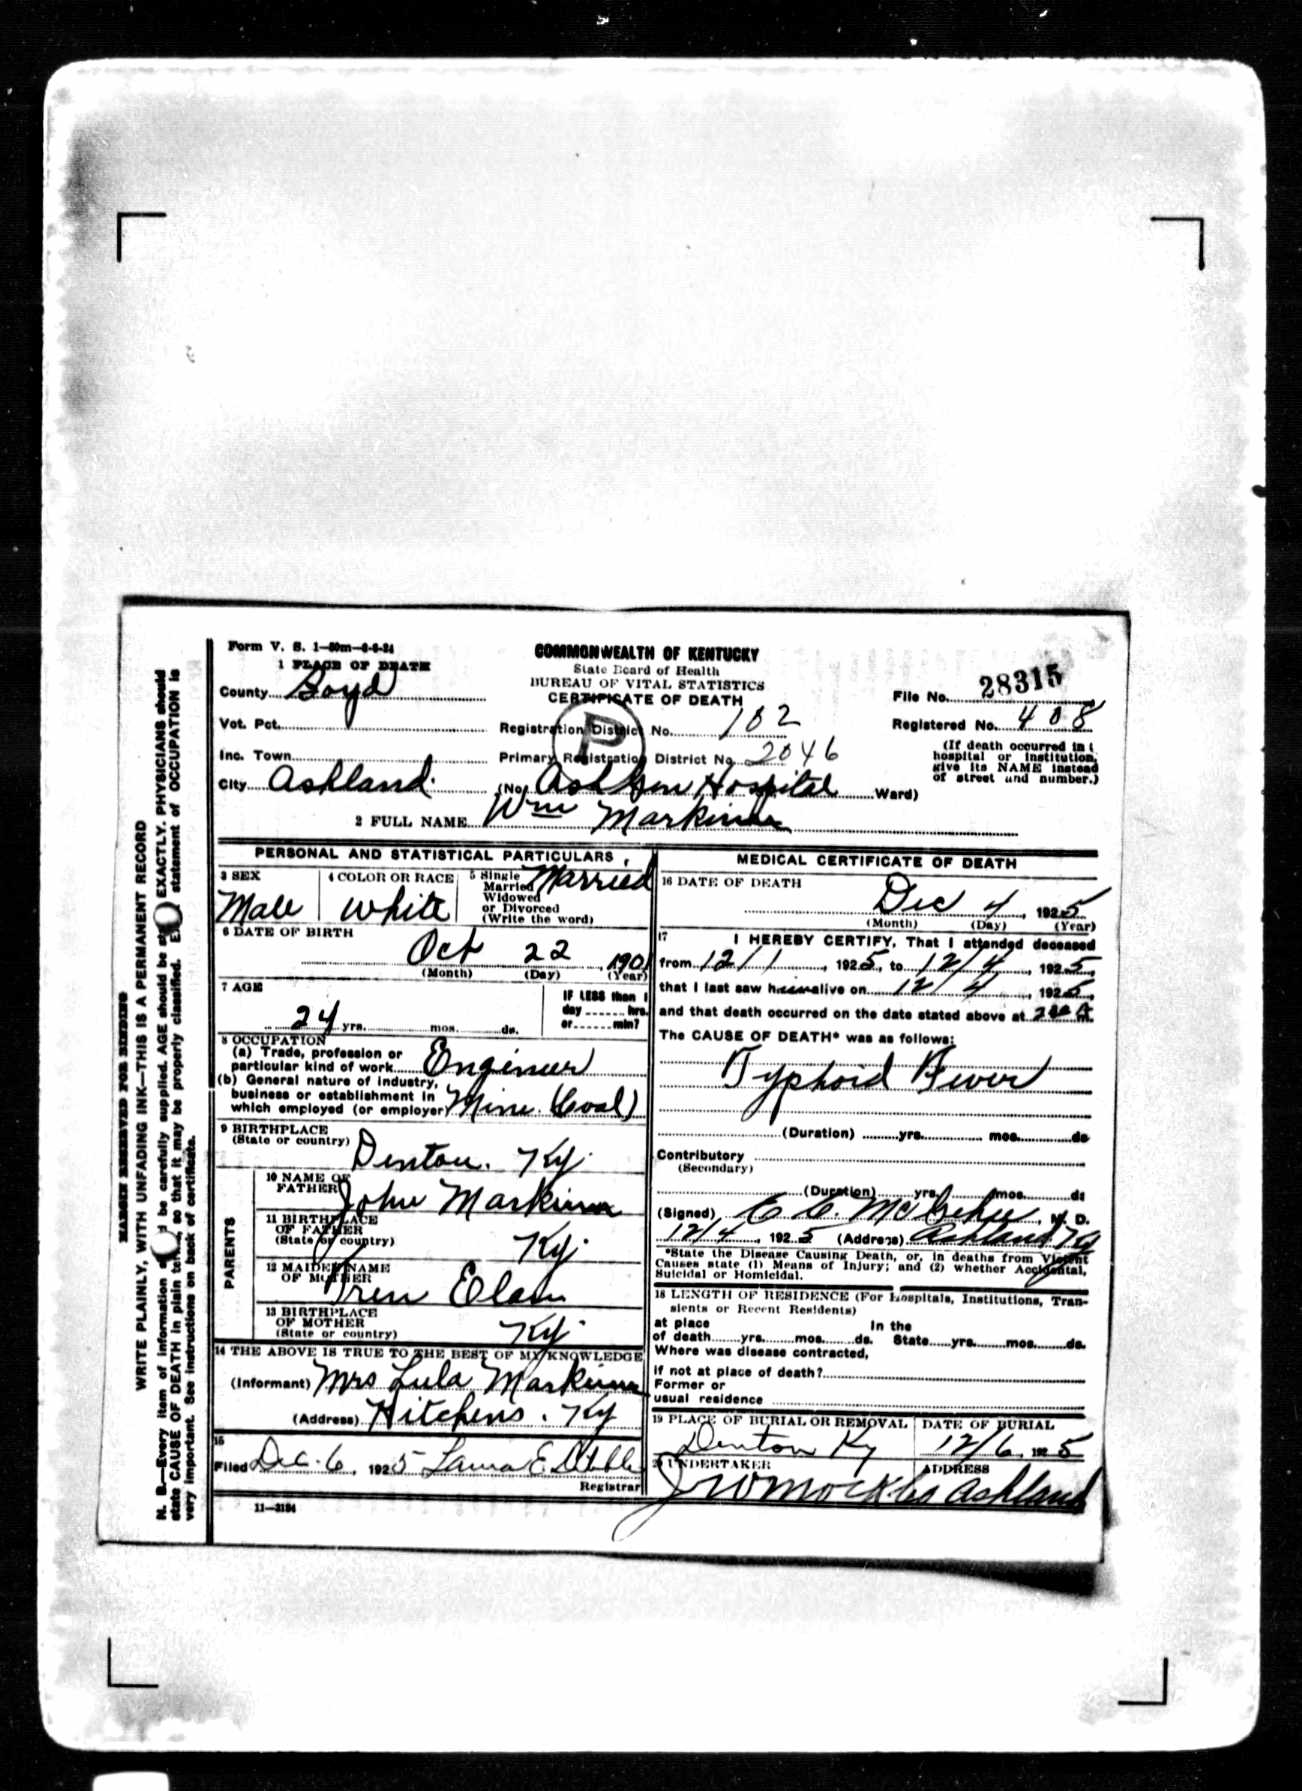 Form V. S. 1—50m—6-6-24
COMMONWEALTH OF KENTUCKY
State Board of Health
BUREAU OF VITAL STATISTICS
CERTIFICATE OF DEATH
1 PLACE OF DEATH
County Boyd
File No. 28315
Vot. Pct.
Registration District No. 102
Registered No. 408
Inc. Town
Primary Registration District No. 2046
P
(If death occurred in a
hospital or institution,
give its NAME instead
of street and number.)
City Ashland (No. Hospital Ward)
2 FULL NAME Wm
PERSONAL AND STATISTICAL PARTICULARS
3 SEX
Male
4 COLOR OR RACE
White
5 Single
Married
Widowed
or Divorced
(Write the word)
Married
6 DATE OF BIRTH
Oct 22, 1901
(Month) (Day) (Year)
7 AGE
24 yrs. mos. ds.
IF LESS than 1
day hrs.
or min?
8 OCCUPATION
(a) Trade, profession or
particular kind of work Engineer
(b) General nature of industry,
business or establishment in
which employed (or employer) Mine (Coal)
9 BIRTHPLACE
(State or country) Denton, Ky.
PARENTS
10 NAME OF
FATHER John
11 BIRTHPLACE
OF FATHER
(State or country) Ky.
12 MAIDEN NAME
OF MOTHER Elam
13 BIRTHPLACE
OF MOTHER
(State or country) Ky.
14 THE ABOVE IS TRUE TO THE BEST OF MY KNOWLEDGE
(Informant) Mrs Lula
(Address) Hitchens, Ky
15
Filed Dec. 6, 1925 Laura E.
Registrar
11—3184
MEDICAL CERTIFICATE OF DEATH
16 DATE OF DEATH
Dec 4, 1925
(Month) (Day) (Year)
17 I HEREBY CERTIFY, That I attended deceased
from 12/1, 1925, to 12/4, 1925,
that I last saw him alive on 12/4, 1925,
and that death occurred on the date stated above at
The CAUSE OF DEATH* was as follows:
Typhoid Fever
(Duration) yrs. mos. ds
Contributory
(Secondary)
(Duration) yrs. mos. ds
(Signed) M. D.
12/4, 1925 (Address) Ashland Ky
*State the Disease Causing Death, or, in deaths from Violent
Causes state (1) Means of Injury; and (2) whether Accidental,
Suicidal or Homicidal.
18 LENGTH OF RESIDENCE (For Hospitals, Institutions, Tran-
sients or Recent Residents)
at place In the
of death yrs. mos. ds. State yrs. mos. ds.
Where was disease contracted,
if not at place of death?
Former or
usual residence
19 PLACE OF BURIAL OR REMOVAL
Denton Ky
DATE OF BURIAL
12/6, 1925
20 UNDERTAKER
ADDRESS
Ashland
MARGIN RESERVED FOR BINDING
WRITE PLAINLY, WITH UNFADING INK—THIS IS A PERMANENT RECORD
N. B.—Every item of information should be carefully supplied. AGE should be stated EXACTLY. PHYSICIANS should
state CAUSE OF DEATH in plain terms, so that it may be properly classified. Exact statement of OCCUPATION is
very important. See instructions on back of certificate.